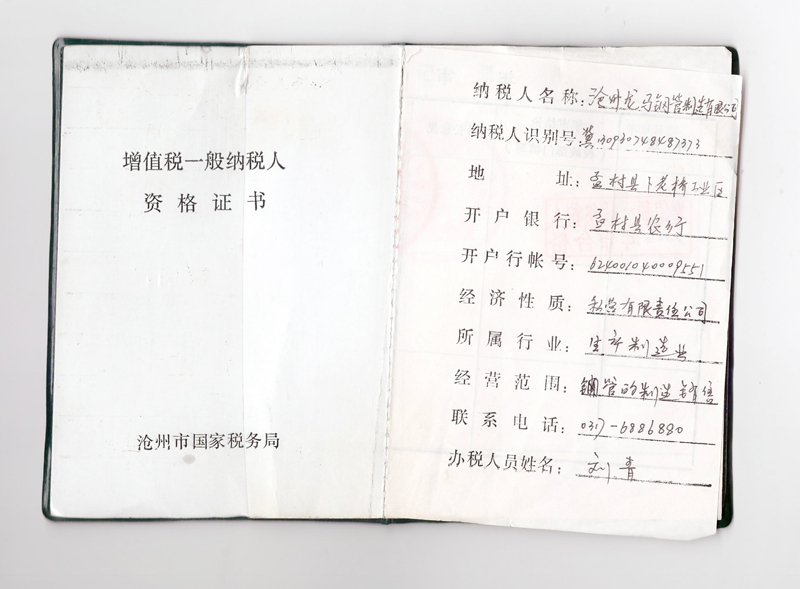 增值税一般纳税人
资格证书
沧州市国家税务局
纳税人名称：沧州龙马钢管制造有限公司
纳税人识别号 冀130930748487373
地址：孟村县卜老桥工业区
开户银行：孟村县农行
开户行帐号：624001040009551
经济性质：私营有限责任公司
所属行业：生产制造业
经营范围：钢管的制造销售
联系电话：0317-6886880
办税人员姓名：刘青